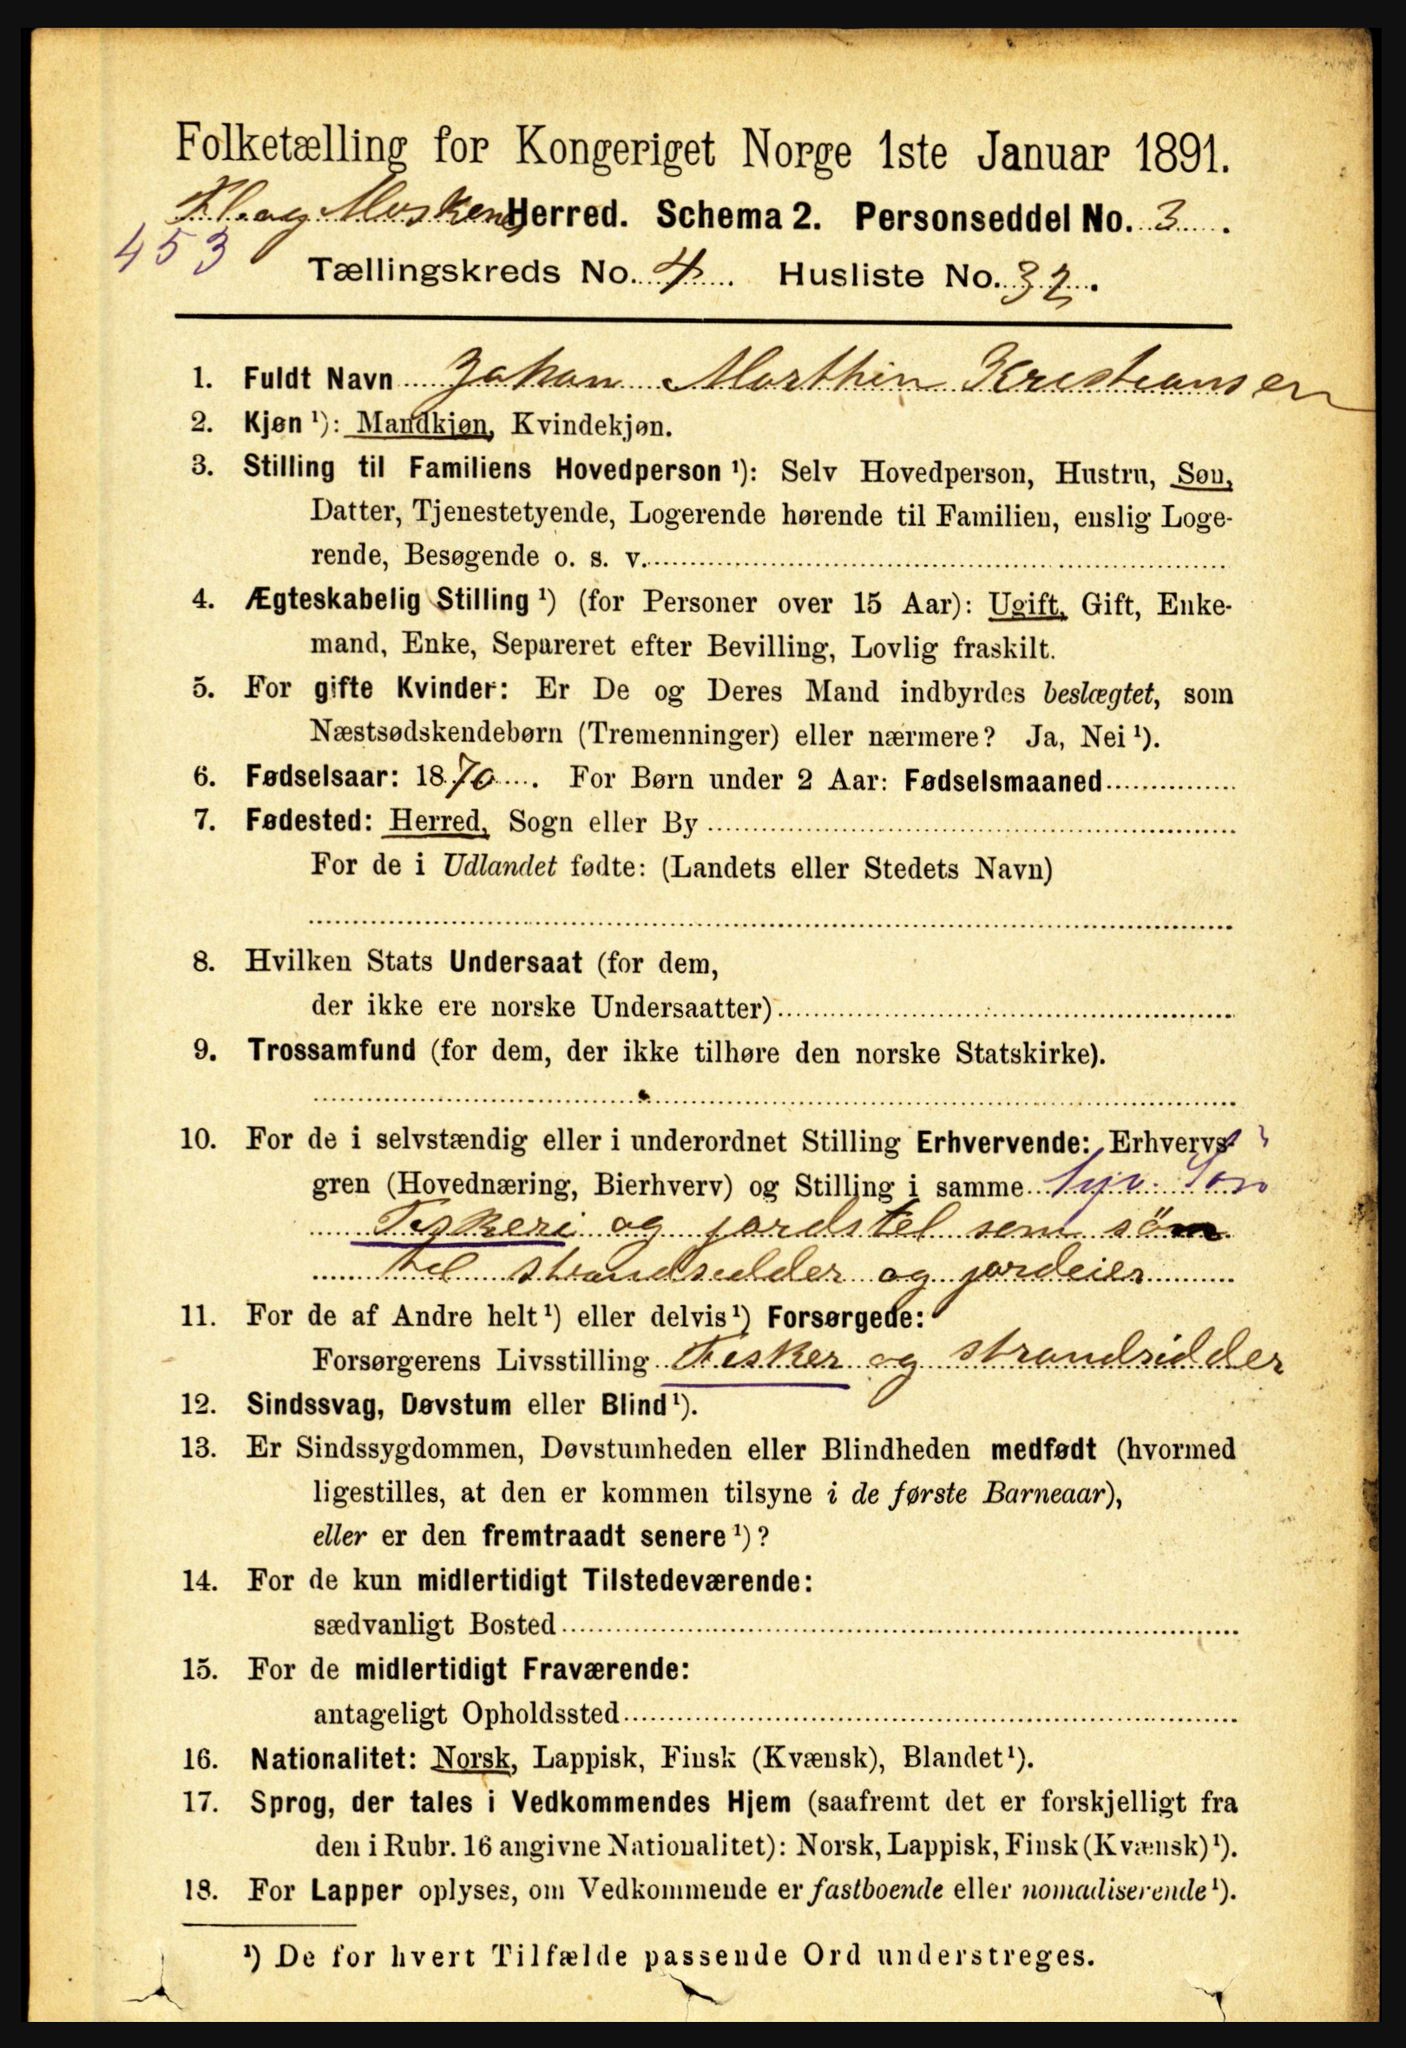 Folketælling for Kongeriget Norge 1ste Januar 1891.
Fl. og Moskenes Herred. Schema 2. Personseddel No. 3.
453
Tællingskreds No. 4. Husliste No. 32.
1. Fuldt Navn Johan Marthin Kristiansen
2. Kjøn ¹): Mandkjøn, Kvindekjøn.
3. Stilling til Familiens Hovedperson ¹): Selv Hovedperson, Hustru, Søn,
Datter, Tjenestetyende, Logerende hørende til Familien, enslig Loge-
rende, Besøgende o. s. v.
4. Ægteskabelig Stilling ¹) (for Personer over 15 Aar): Ugift, Gift, Enke-
mand, Enke, Separeret efter Bevilling, Lovlig fraskilt.
5. For gifte Kvinder: Er De og Deres Mand indbyrdes beslægtet, som
Næstsødskendebørn (Tremenninger) eller nærmere? Ja, Nei ¹).
6. Fødselsaar: 1870. For Børn under 2 Aar: Fødselsmaaned
7. Fødested: Herred, Sogn eller By
For de i Udlandet fødte: (Landets eller Stedets Navn)
8. Hvilken Stats Undersaat (for dem,
der ikke ere norske Undersaatter)
9. Trossamfund (for dem, der ikke tilhøre den norske Statskirke).
10. For de i selvstændig eller i underordnet Stilling Erhvervende: Erhvervs-
gren (Hovednæring, Bierhverv) og Stilling i samme
Fiskeri og jordstel som søn
til strandsidder og jordeier
11. For de af Andre helt ¹) eller delvis ¹) Forsørgede:
Forsørgerens Livsstilling Fisker og strandsidder
12. Sindssvag, Døvstum eller Blind ¹).
13. Er Sindssygdommen, Døvstumheden eller Blindheden medfødt (hvormed
ligestilles, at den er kommen tilsyne i de første Barneaar),
eller er den fremtraadt senere ¹)?
14. For de kun midlertidigt Tilstedeværende:
sædvanligt Bosted
15. For de midlertidigt Fraværende:
antageligt Opholdssted
16. Nationalitet: Norsk, Lappisk, Finsk (Kvænsk), Blandet ¹).
17. Sprog, der tales i Vedkommendes Hjem (saafremt det er forskjelligt fra
den i Rubr. 16 angivne Nationalitet): Norsk, Lappisk, Finsk (Kvænsk) ¹).
18. For Lapper oplyses, om Vedkommende er fastboende eller nomadiserende ¹).
¹) De for hvert Tilfælde passende Ord understreges.